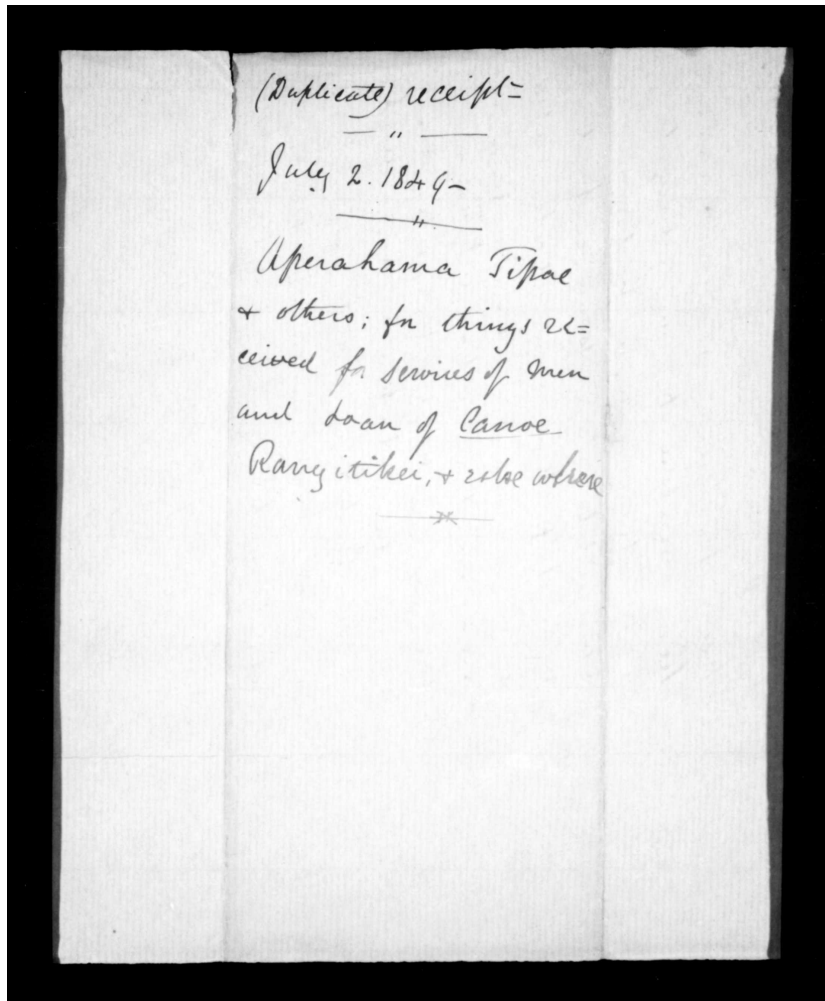 (Duplicate) receipt=
July 2. 1849-
Aperahama Tipae
& others; for things re=
ceived for services of men
and Loan of Canoe
Rangitikei, & else where